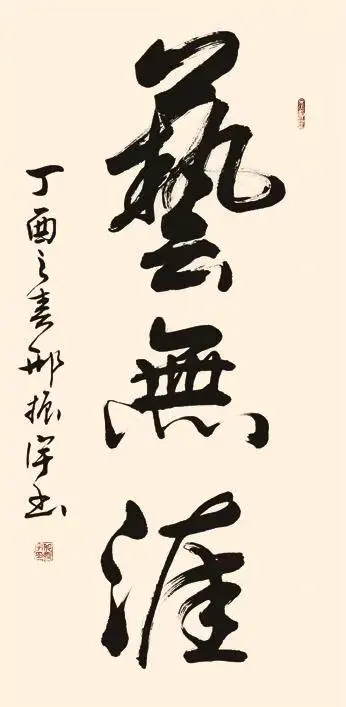 藝無涯
丁酉之春邢振洋书